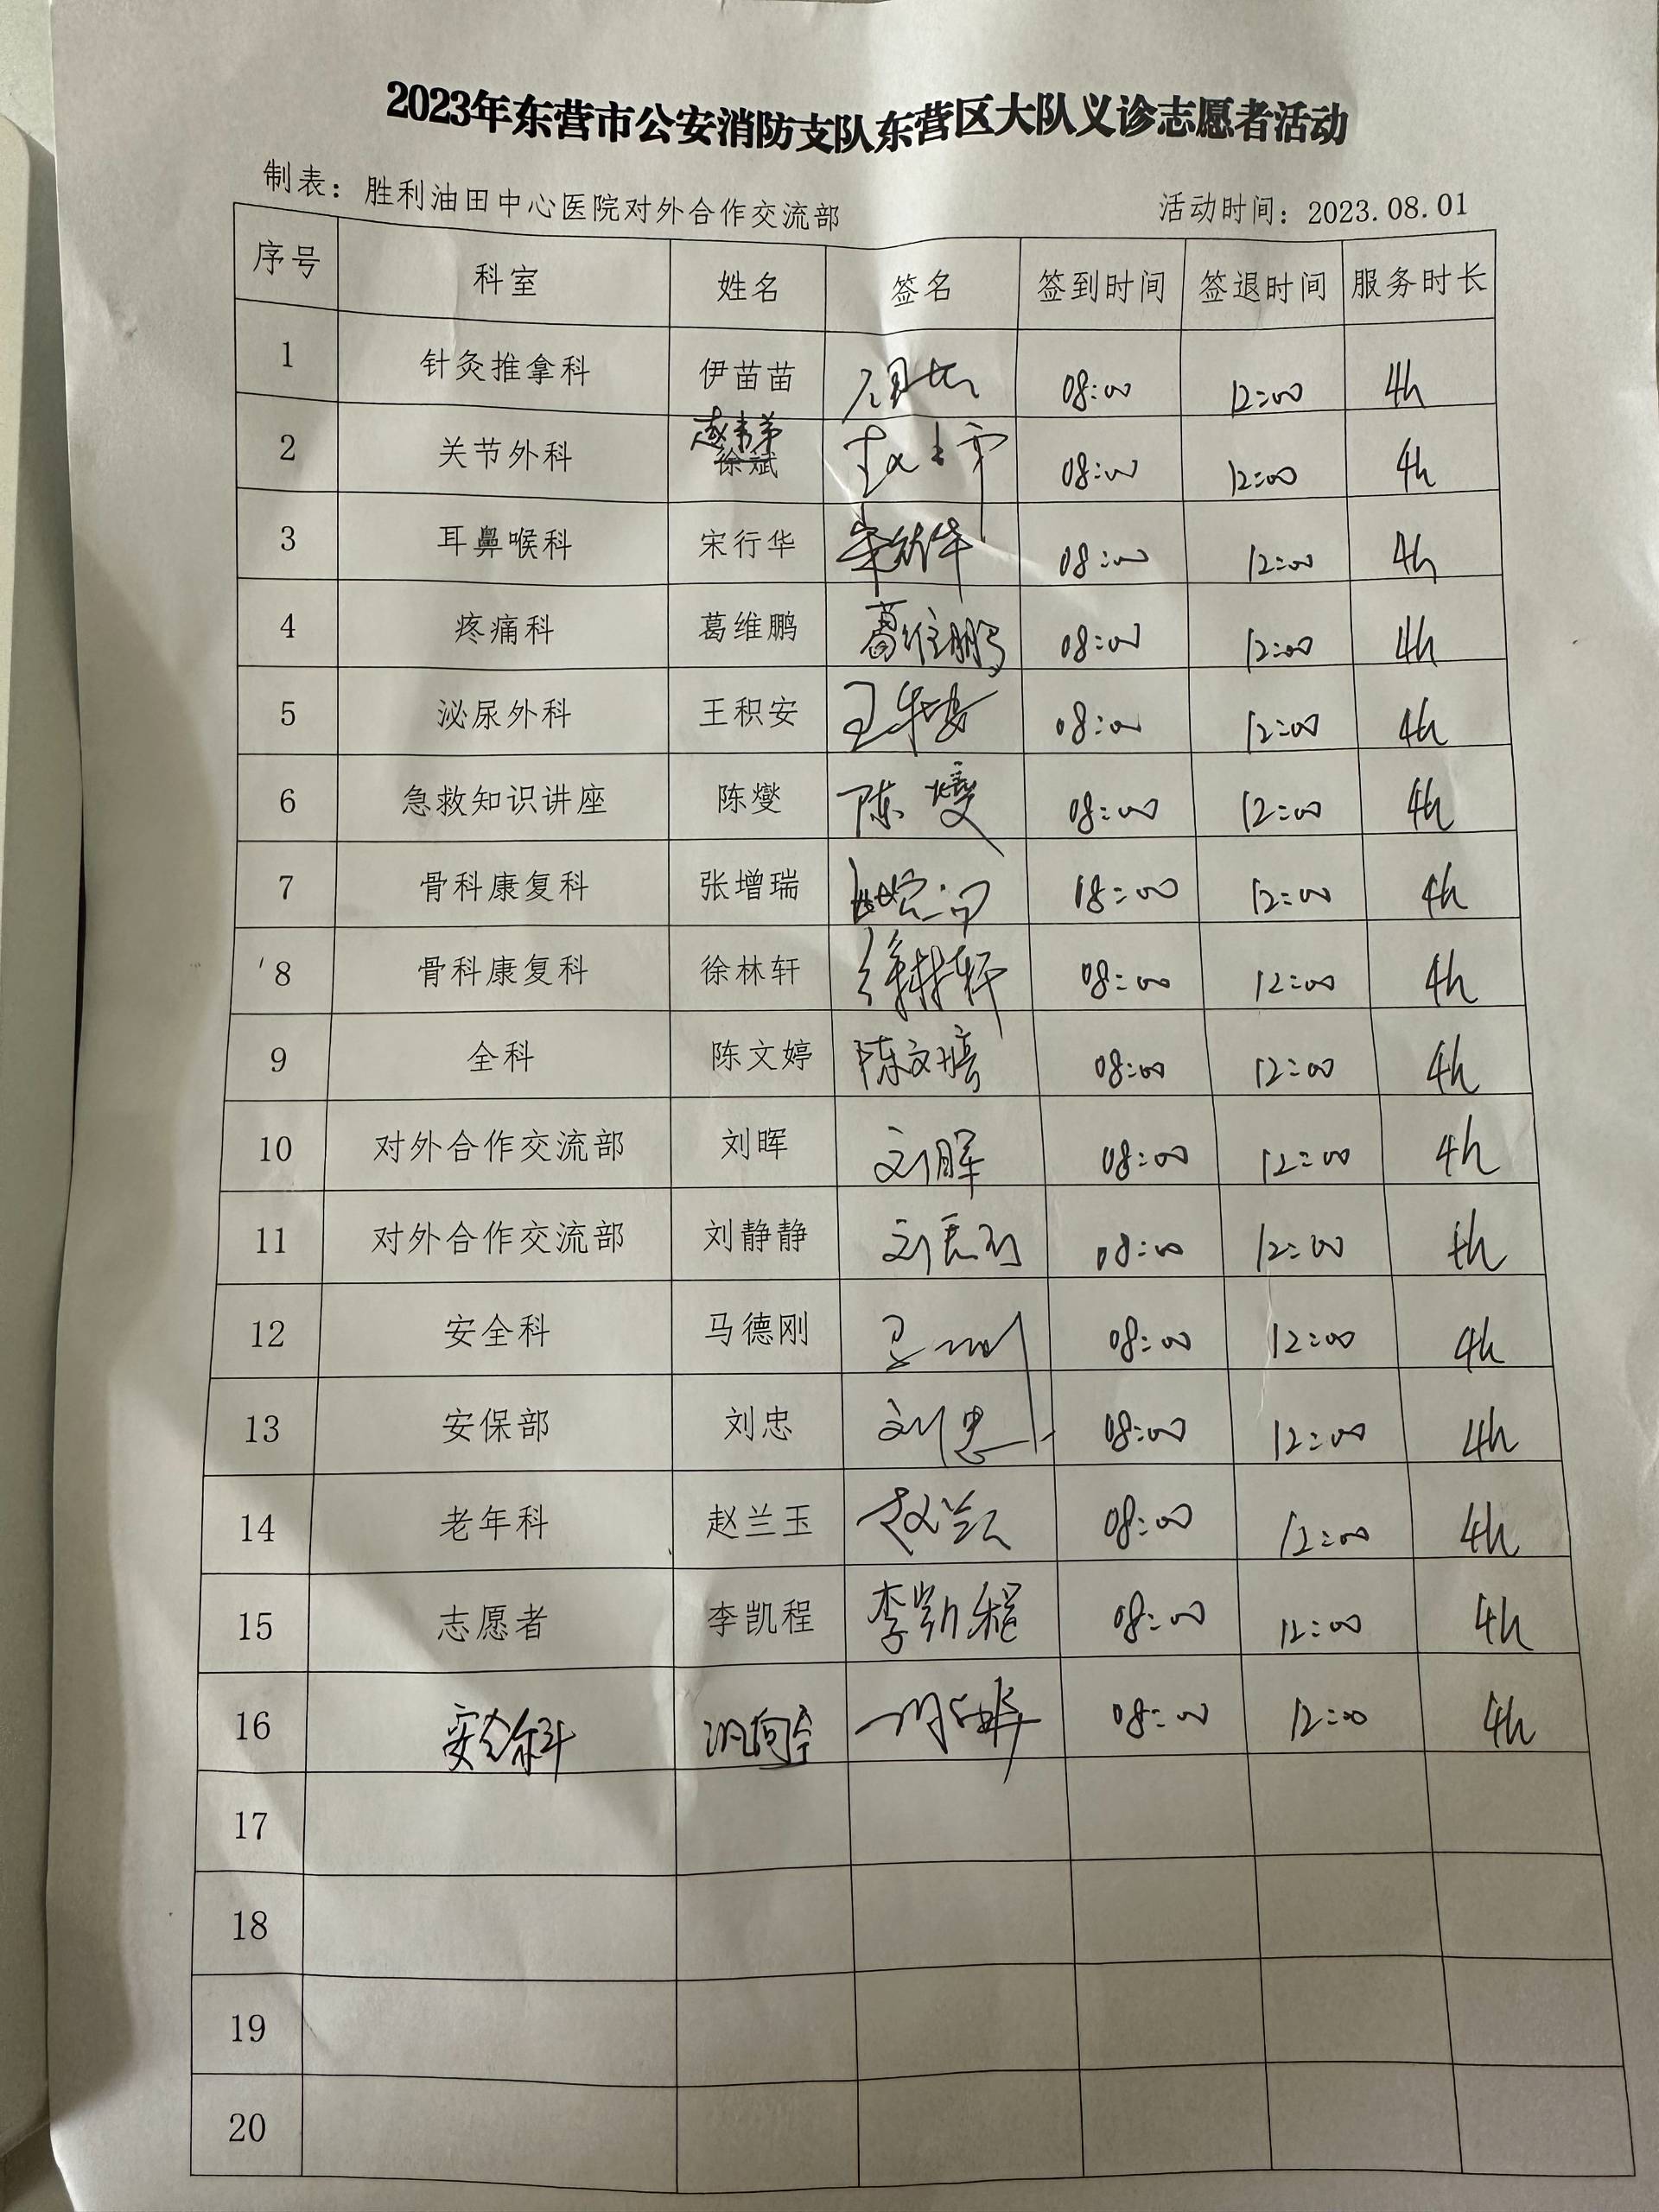 2023年东营市公安消防支队东营区大队义诊志愿者活动
制表：胜利油田中心医院对外合作交流部 活动时间：2023.08.01
序号 科室 姓名 签名 签到时间 签退时间 服务时长
1 针灸推拿科 伊苗苗 08:00 12:00 4h
2 关节外科 徐斌 08:00 12:00 4h
3 耳鼻喉科 宋行华 宋行华 08:00 12:00 4h
4 疼痛科 葛维鹏 葛维鹏 08:00 12:00 4h
5 泌尿外科 王积安 王积安 08:00 12:00 4h
6 急救知识讲座 陈燮 陈燮 08:00 12:00 4h
7 骨科康复科 张增瑞 08:00 12:00 4h
8 骨科康复科 徐林轩 徐林轩 08:00 12:00 4h
9 全科 陈文婷 陈文婷 08:00 12:00 4h
10 对外合作交流部 刘晖 刘晖 08:00 12:00 4h
11 对外合作交流部 刘静静 08:00 12:00 4h
12 安全科 马德刚 08:00 12:00 4h
13 安保部 刘忠 刘忠 08:00 12:00 4h
14 老年科 赵兰玉 赵兰玉 08:00 12:00 4h
15 志愿者 李凯程 李凯程 08:00 12:00 4h
16 安全科 08:00 12:00 4h
17
18
19
20